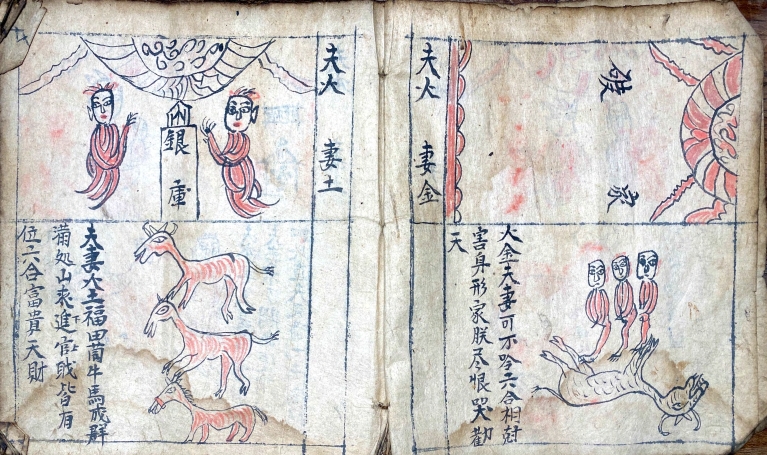 破家
火金夫妻可不吟六合相尅
害身形家朕尽恨哭勸
天
夫火 妻金
夫火 妻土
銀庫
夫妻火土福田茴牛馬成群
满処山来進官皆有
位六合富貴天財